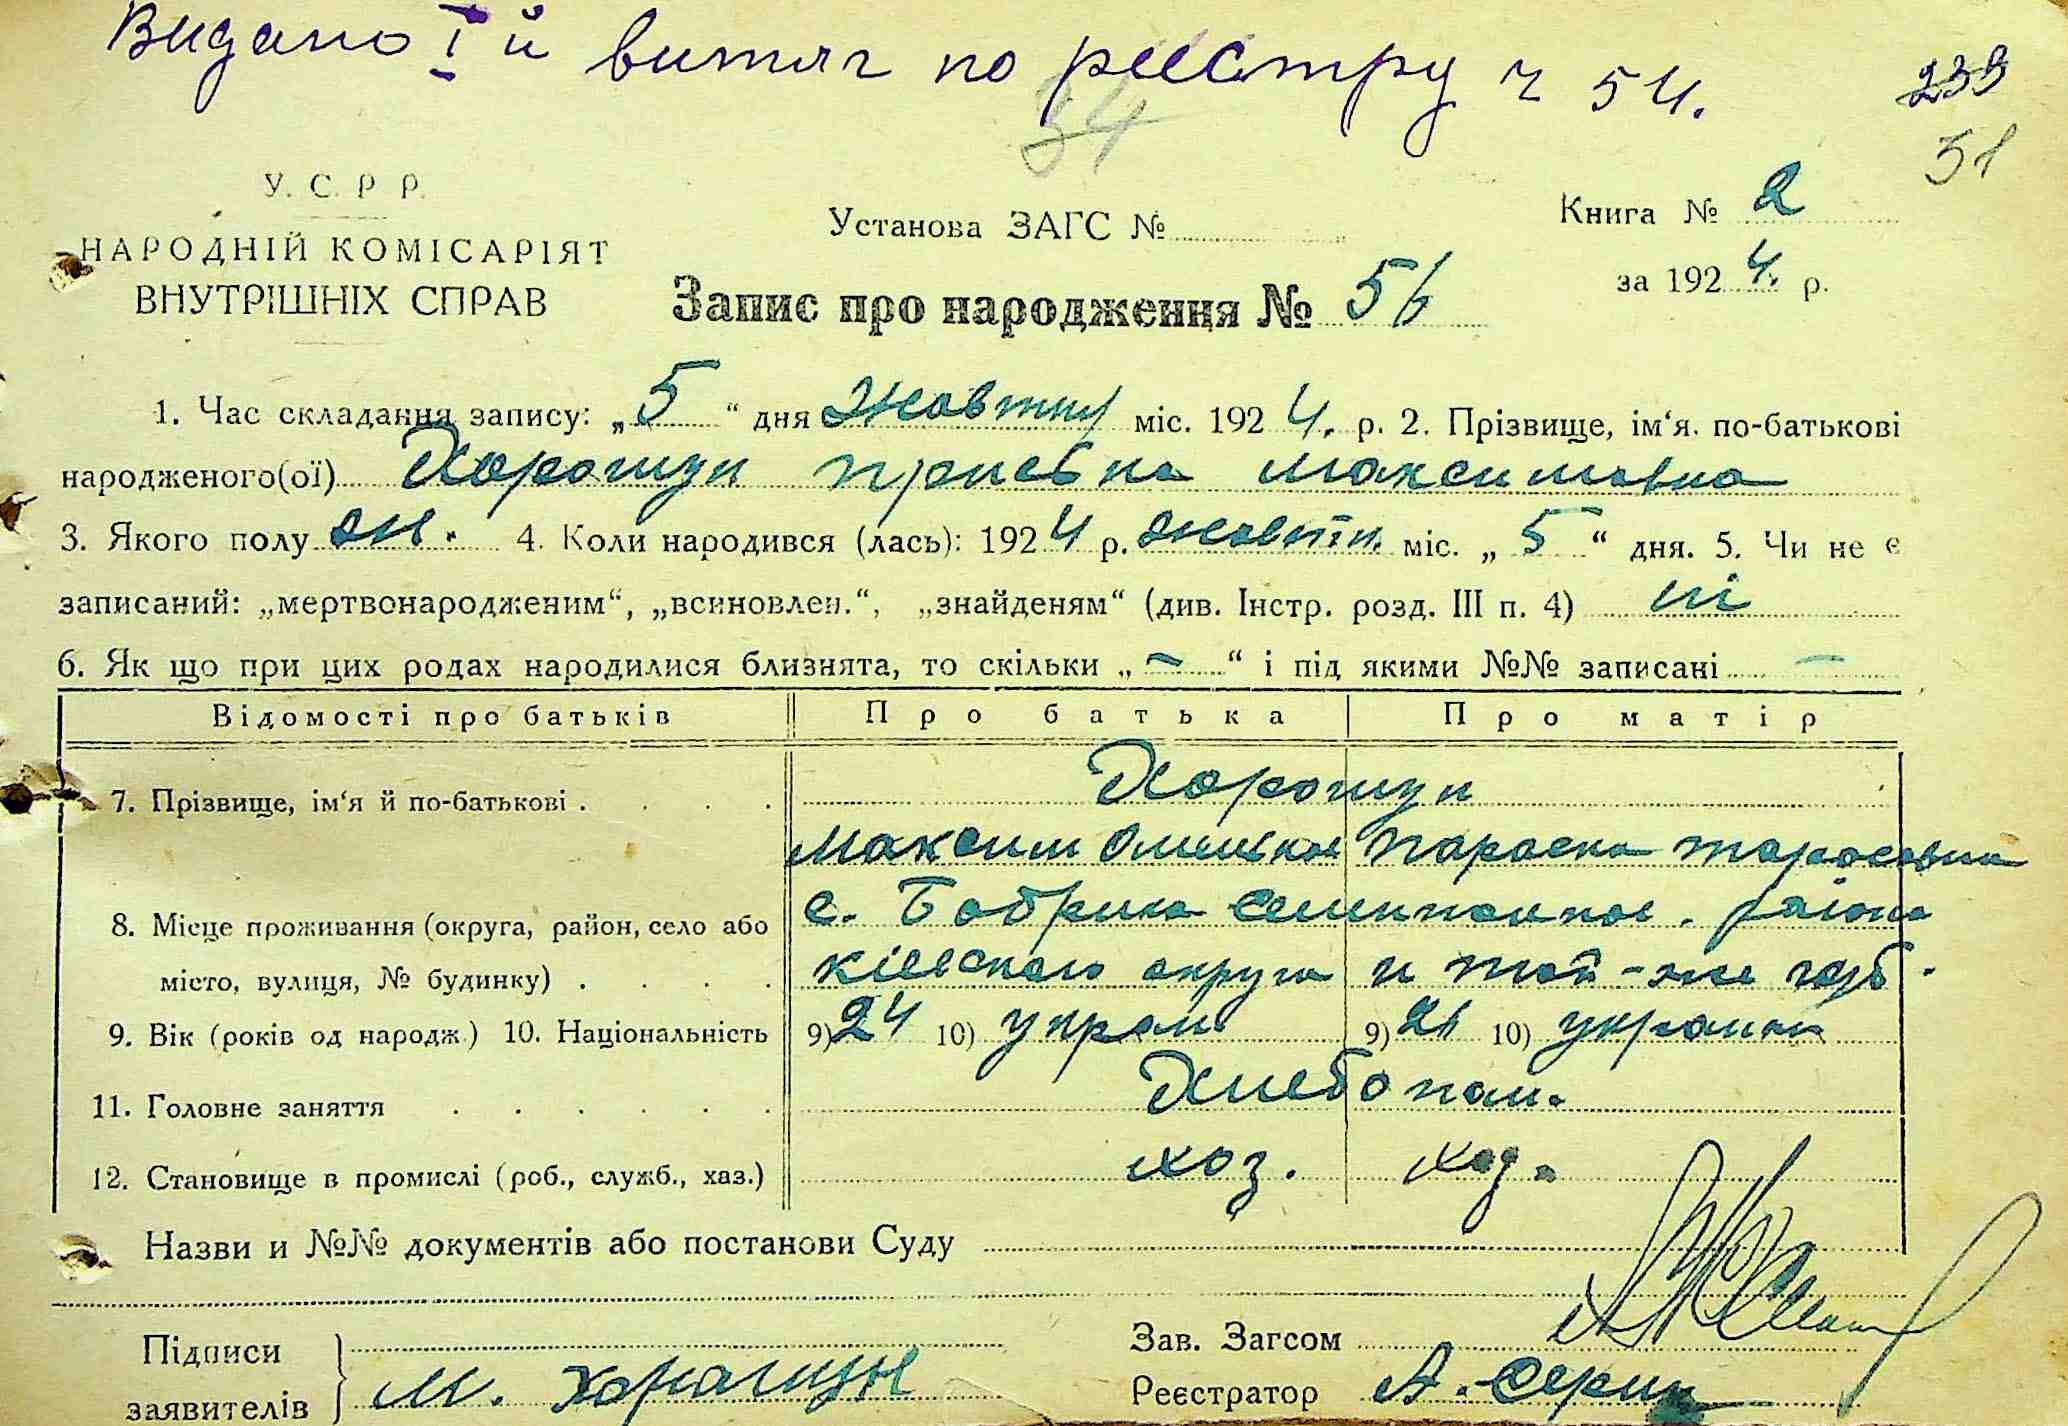 Видано І й витяг по реєстру ч 54.
233
34
51
У. С. Р. Р.
НАРОДНІЙ КОМІСАРІЯТ
ВНУТРІШНІХ СПРАВ
Установа ЗАГС №
Книга № 2
за 1924. р.
Запис про народження № 56
1. Час складання запису: „5“ дня Жовтня міс. 1924. р. 2. Прізвище, ім'я. по-батькові
народженого(ої) Хорошун Максимовна
3. Якого полу ж. 4. Коли народився (лась): 1924 р. жовтн. міс. „5“ дня. 5. Чи не є
записаний: „мертвонародженим“, „всиновлен.“, „знайденям“ (див. Інстр. розд. III п. 4) ні
6. Як що при цих родах народилися близнята, то скільки „-“ і під якими №№ записані -
Відомості про батьків Про батька Про матір
7. Прізвище, ім'я й по-батькові . . . . Хорошун
Максим Параска Тарасовна
8. Місце проживання (округа, район, село або с. Бобрика района
місто, вулиця, № будинку) . . . . округи и той-же
9. Вік (років од народж.) 10. Національність 9) 24 10) украи 9) 21 10) украинк
11. Головне заняття . . . . . . Хлебопаш.
12. Становище в промислі (роб., служб., хаз.) хоз. хоз.
Назви и №№ документів або постанови Суду
Підписи
заявителів
М. Хорошун
Зав. Загсом
Реєстратор А.